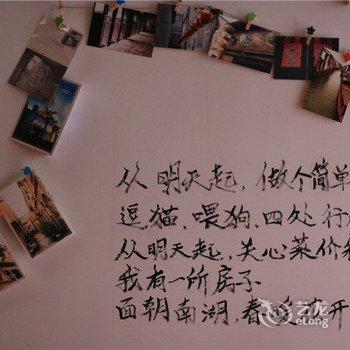 从明天起，做个简单
逗猫、喂狗、四处行
从明天起，关心菜价
我有一所房子
面朝南湖，春 开
艺龙
eLong